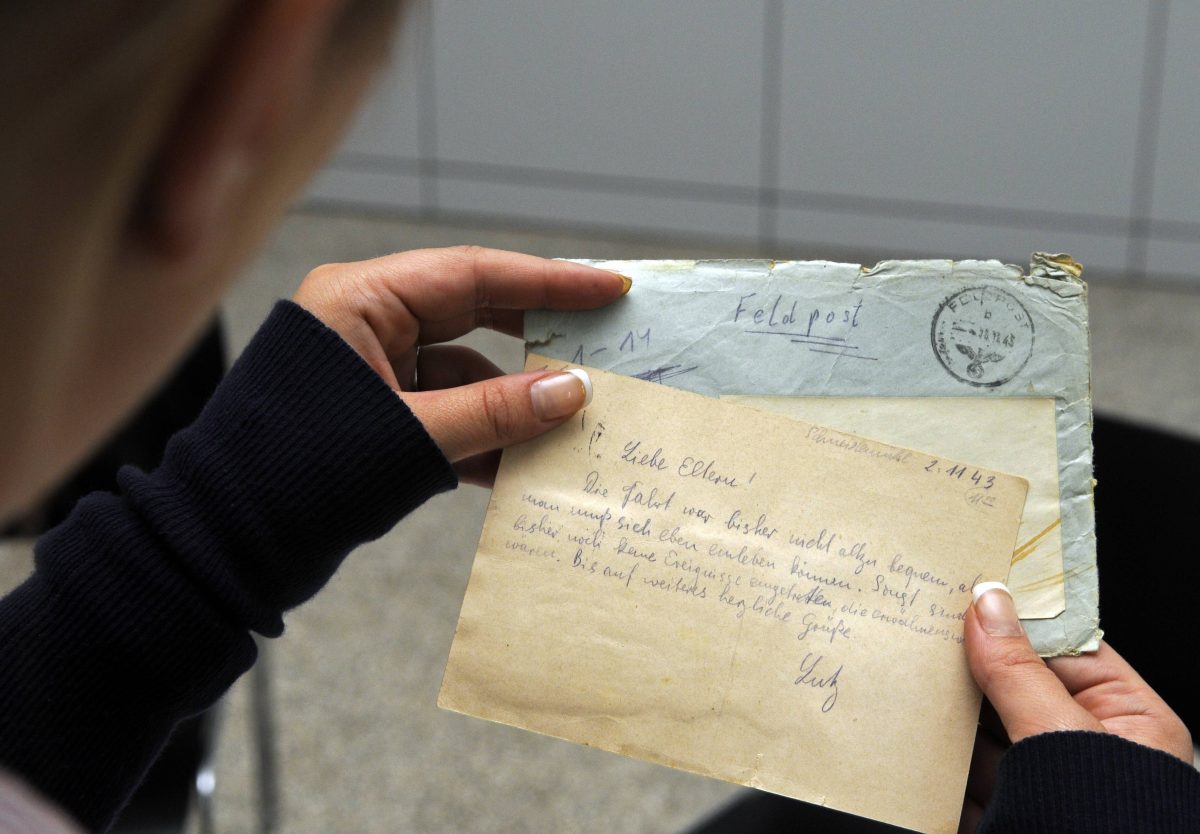 Feldpost
FELDPOST
b
1-14
2.11 43
Liebe Eltern!
Die Fahrt war bisher nicht allzu bequem,
man muß sich eben einleben können. Sonst sind
bisher noch keine Ereignisse eingetreten, die
wären. Bis auf weiteres herzliche Grüße.
Lutz